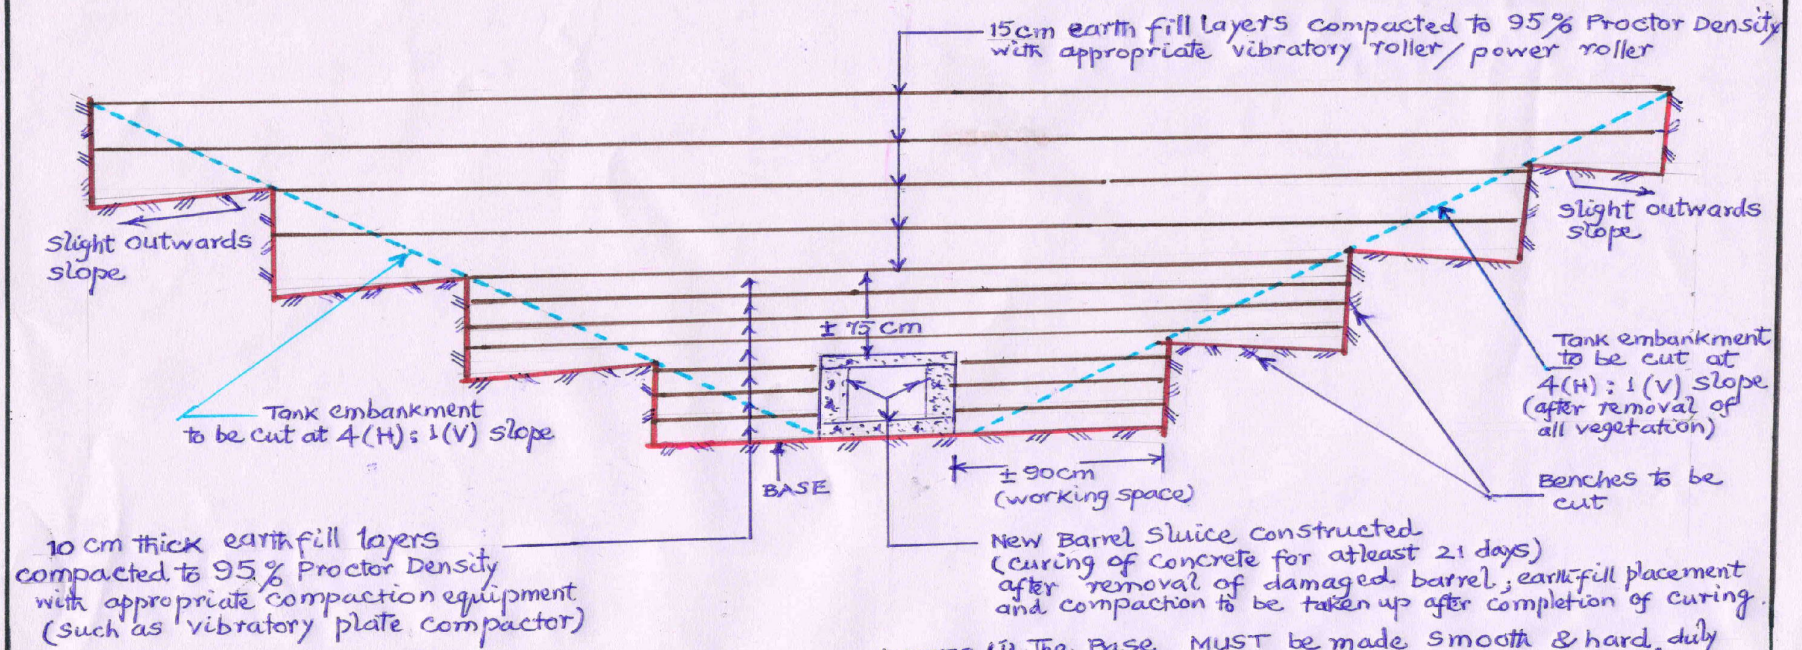 15cm earth fill layers compacted to 95% Proctor Density
with appropriate vibratory roller/power roller
slight outwards
slope
slight outwards
slope
± 75 cm
Tank embankment
to be cut at 4(H): 1(V) slope
Tank embankment
to be cut at
4(H): 1(V) slope
(after removal of
all vegetation)
± 90cm
(working space)
BASE
Benches to be
cut
10 cm thick earthfill layers
compacted to 95% Proctor Density
with appropriate compaction equipment
(such as vibratory plate compactor)
New Barrel Sluice constructed
(curing of concrete for atleast 21 days)
after removal of damaged barrel; earth-fill placement
and compaction to be taken up after completion of curing.
The Base MUST be made smooth & hard, duly